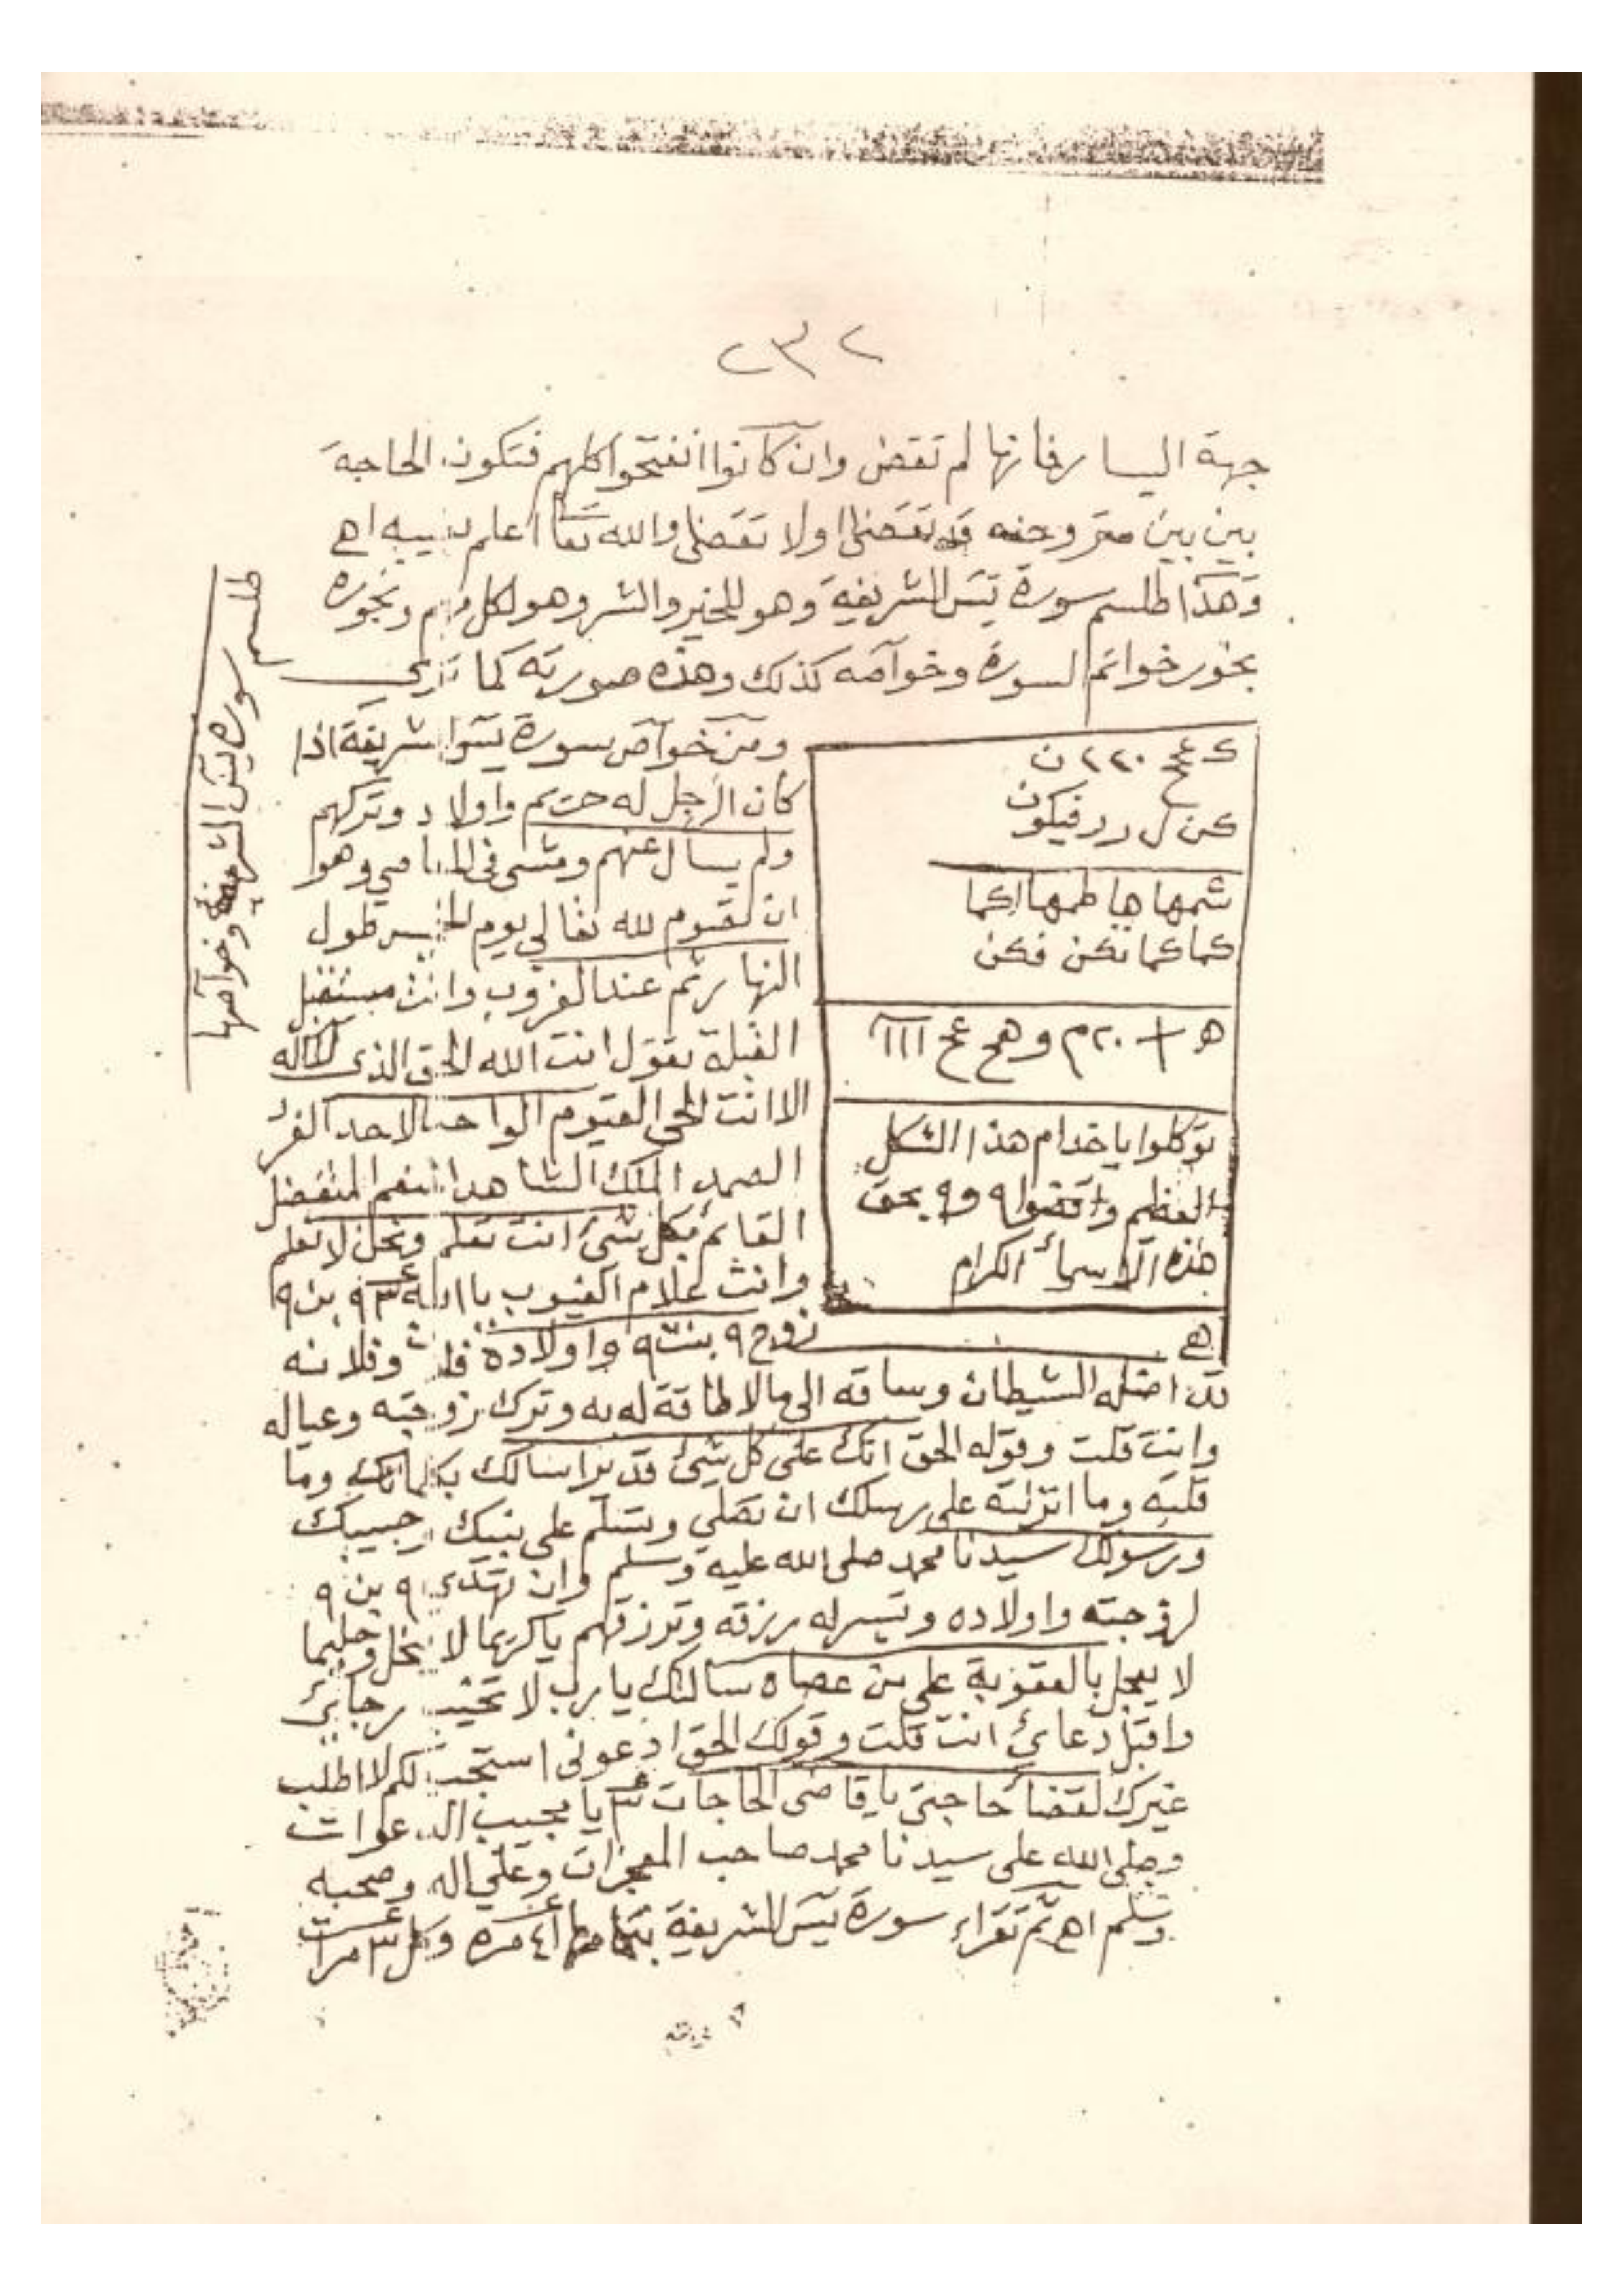 ٢٣٢
جهة اليسار فانها لم تقض وان كانوا انفتحوا كلهم فتكون الحاجة
بين بين قد تقضى اولا تقضى والله تعا اعلم بغيبه اهـ
وهذا طلسم سورة يس الشريفة وهو للخير والشر وهو لكل وبخوره
بخور خواتم السورة وخواصه كذلك وهذه صورته كما ترى
طلسم سورة يس الشريفة وخواصها
ك عج ٢٢٠ ن
كن ل رد فيكون
شمها ها طمها اكما
كما كما نكن فكن
توكلوا يا خدام هذا الشكل
العظيم واقضوا ٩ و٩ بحق
هذه الاسماء الكرام
اهـ
ومن خواص سورة يس الشريفة اذا
كان الرجل له حريم واولاد وتركهم
ولم يسال عنهم ومشى فى المعاصي وهو
ان تصوم لله تعالى يوم الخميس طول
النهار ثم عند الغروب وانت مستقبل
القبلة تقول انت الله الحق الذى لا اله
الا انت الحي القيوم الواحد الاحد الفرد
الصمد الملك الشاهد المنعم المتفضل
القائم بكل شئ انت تعلم ونحن لا نعلم
وانت علام الغيوب يا الله ٣ ٩ بن ٩
زوج ٩ بنت ٩ واولاده فلان وفلانه
قد اضله الشيطان وساقه الى مالا طاقة له به وترك زوجته وعياله
وانت قلت وقوله الحق انك على كل شئ قدير اسالك بكلماتك وما
قلته وما انزلته على رسلك ان تصلي وتسلم على نبيك وحبيبك
ورسولك سيدنا محمد صلى الله عليه وسلم وان تهدي ٩ بن ٩
لزوجته واولاده وتيسر له رزقه وترزقهم يا كريما لا يبخل وحليما
لا يعجل بالعقوبة على من عصاه سالتك يا رب لا تخيب رجائي
واقبل دعائي انت قلت وقولك الحق ادعونى استجب لكم لا اطلب
غيرك لقضاء حاجتى يا قاضى الحاجات ٣ يا مجيب الدعوات
وصلى الله على سيدنا محمد صاحب المعجزات وعلى اله وصحبه
وسلم اهـ ثم تقراء سورة يس الشريفة بتمامها ٤١ مره وكل ٣ مرات